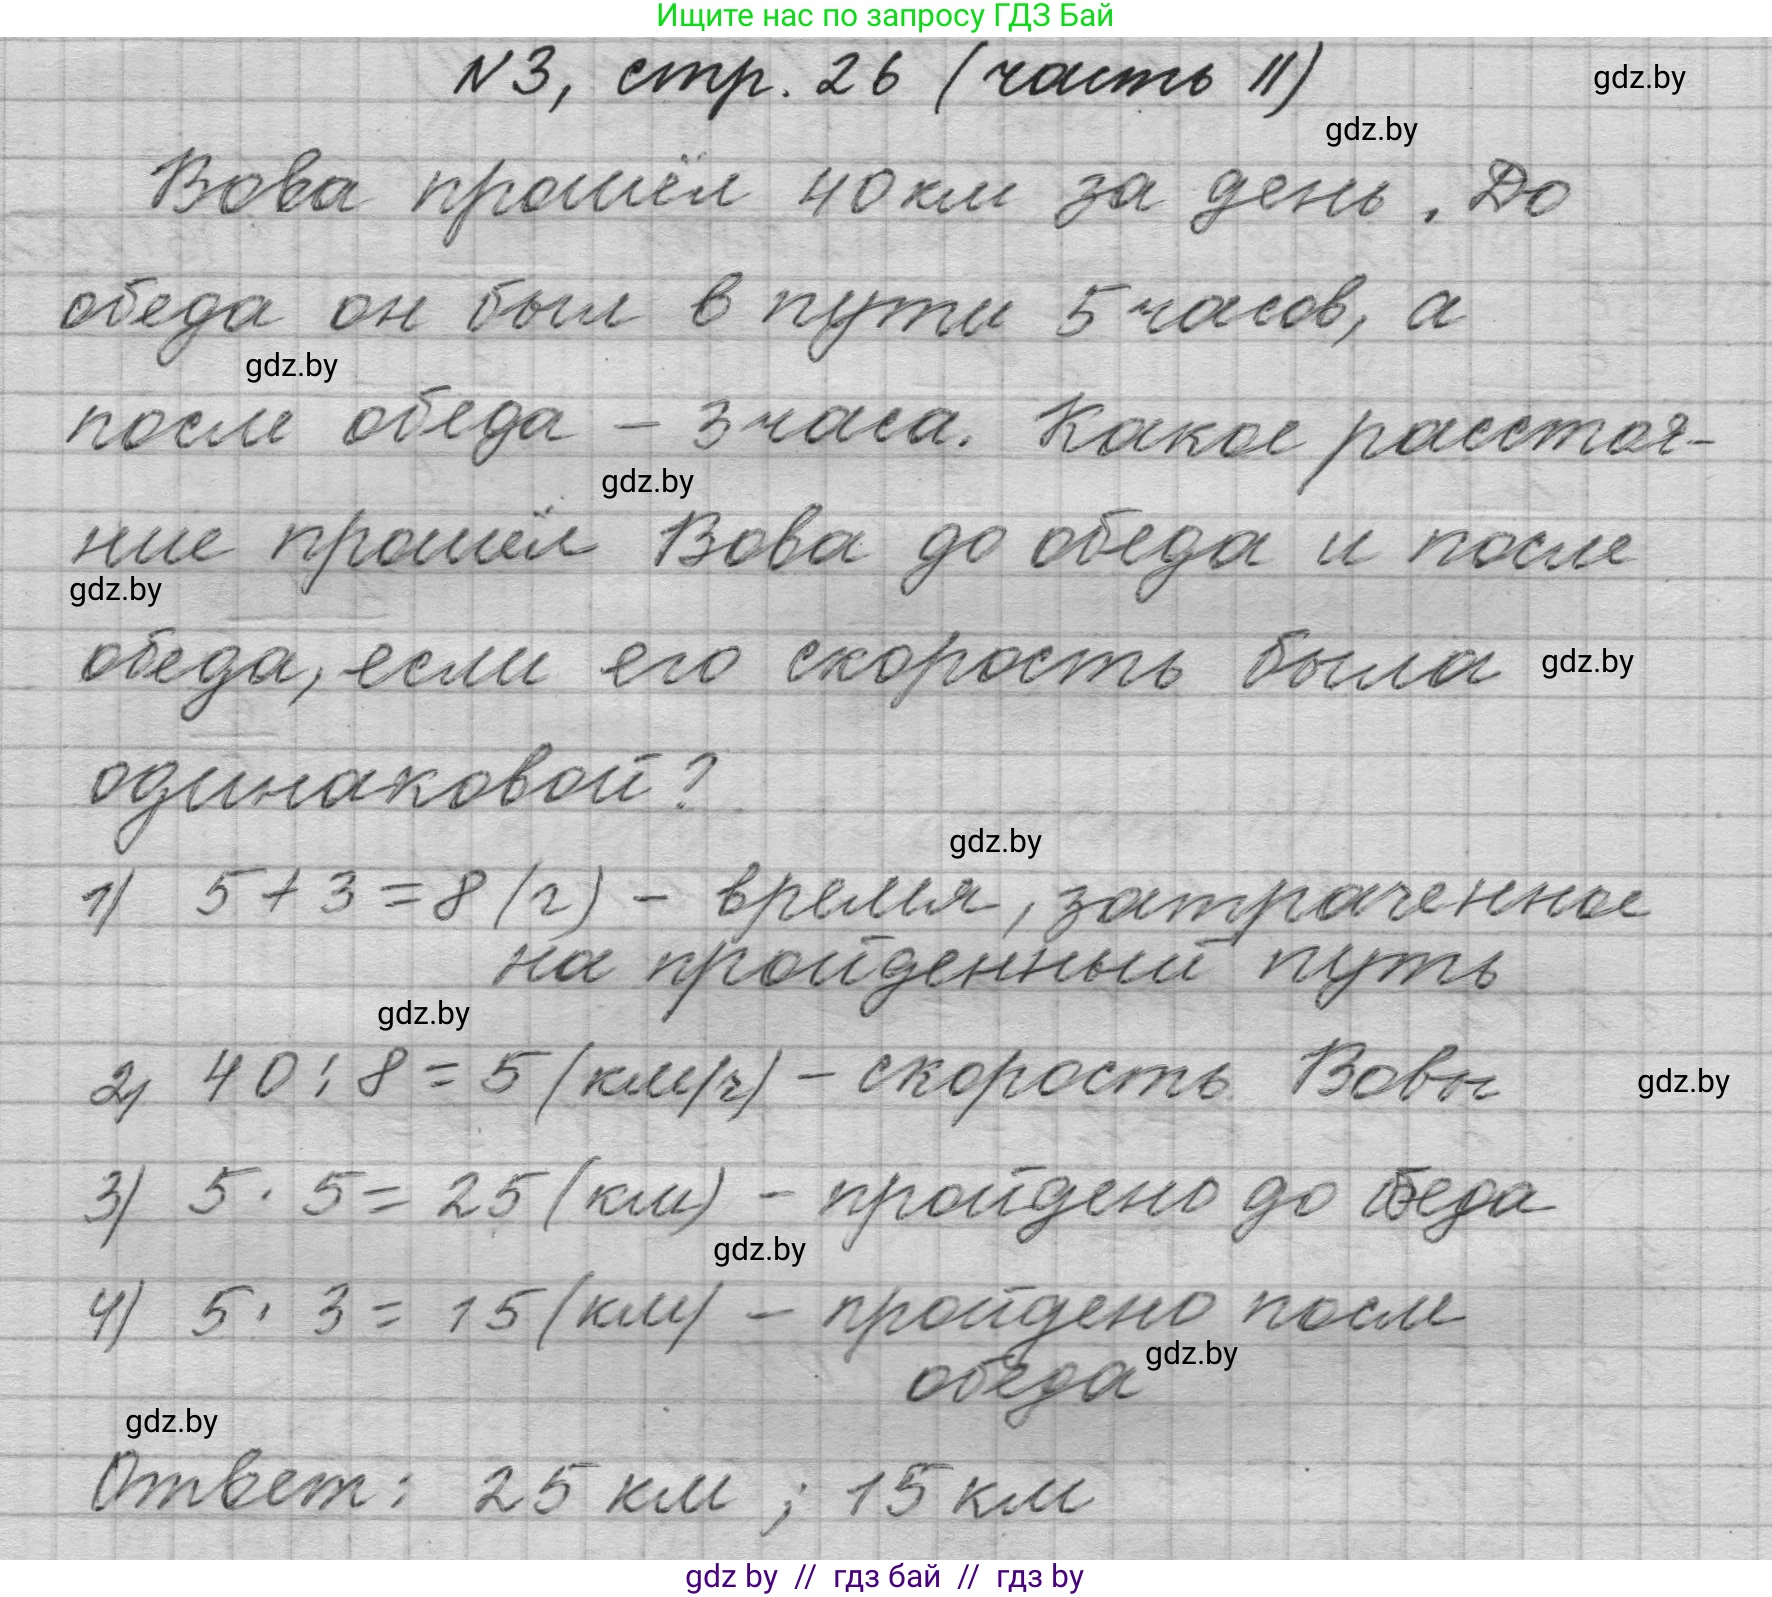 Ищите нас по запросу ГДЗ Бай
№3, стр. 26 (часть II)
gdz.by
gdz.by
Вова прошёл 40 км за день. До
обеда он был в пути 5 часов, а
gdz.by
после обеда – 3 часа. Какое расстоя-
gdz.by
ние прошёл Вова до обеда и после
gdz.by
обеда, если его скорость была
gdz.by
одинаковой?
gdz.by
1) 5 + 3 = 8 (ч) – время, затраченное
на пройденный путь
gdz.by
2) 40 : 8 = 5 (км/ч) – скорость Вовы
gdz.by
3) 5 · 5 = 25 (км) – пройдено до обеда
gdz.by
4) 5 · 3 = 15 (км) – пройдено после
обеда
gdz.by
gdz.by
Ответ: 25 км ; 15 км
gdz by // гдз бай // гдз by